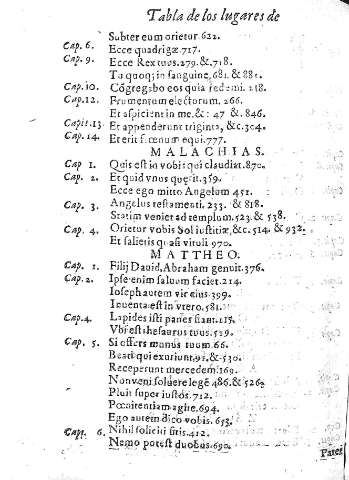 Tabla de los lugares de
Subter eum orietur. 622.
Cap. 6. Ecce quadrigæ. 717.
Cap. 9. Ecce Rex tuus. 279. & .718.
Tu quoq; in sanguine, 681. & 881.
Cap. 10. Cõgregabo eos quia redemi. 218.
Cap. 12. Frumentum electorum. 266.
Et aspicient in me. & : 47 & .846.
Capit. 13 Et appenderunt triginta, & c. 304.
Cap. 14. Et erit frœnum equi. 777.
MALACHIAS.
Cap 1. Quis est in vobis qui claudiat. 870.
Cap. 2. Et quid vnus quęrit. 359.
Ecce ego mitto Angelum 451.
Cap. 3. Angelus testamenti. 233. & 818.
Statim veniet ad templum. 523. & 538.
Cap. 4. Orietur vobis Sol iustitiæ, &c. 514. & 932.
Et salietis quasi vituli 970.
MATTHEO.
Cap. 1. Filij Dauid, Abraham genuit. 376.
Cap. 2. Ipse enim saluum faciet. 214.
Ioseph autem vir eius. 399.
Inuenta est in vtero. 581.
Cap. 4. Lapides isti panes fiant. 115.
Vbi est thesaurus tuus. 529.
Cap. 5. Si offers munus tuum. 66.
Beati qui exuriunt. 91. & 530.
Receperunt mercedem. 169.
Non veni soluere legẽ 486. & 526.
Pluit super iustos. 712.
Pœnitentiam agite. 694.
Ego autem dico vobis. 653.
Cap. 6. Nihil soliciti sitis. 412.
Nemo potest duobus. 690.
Pates